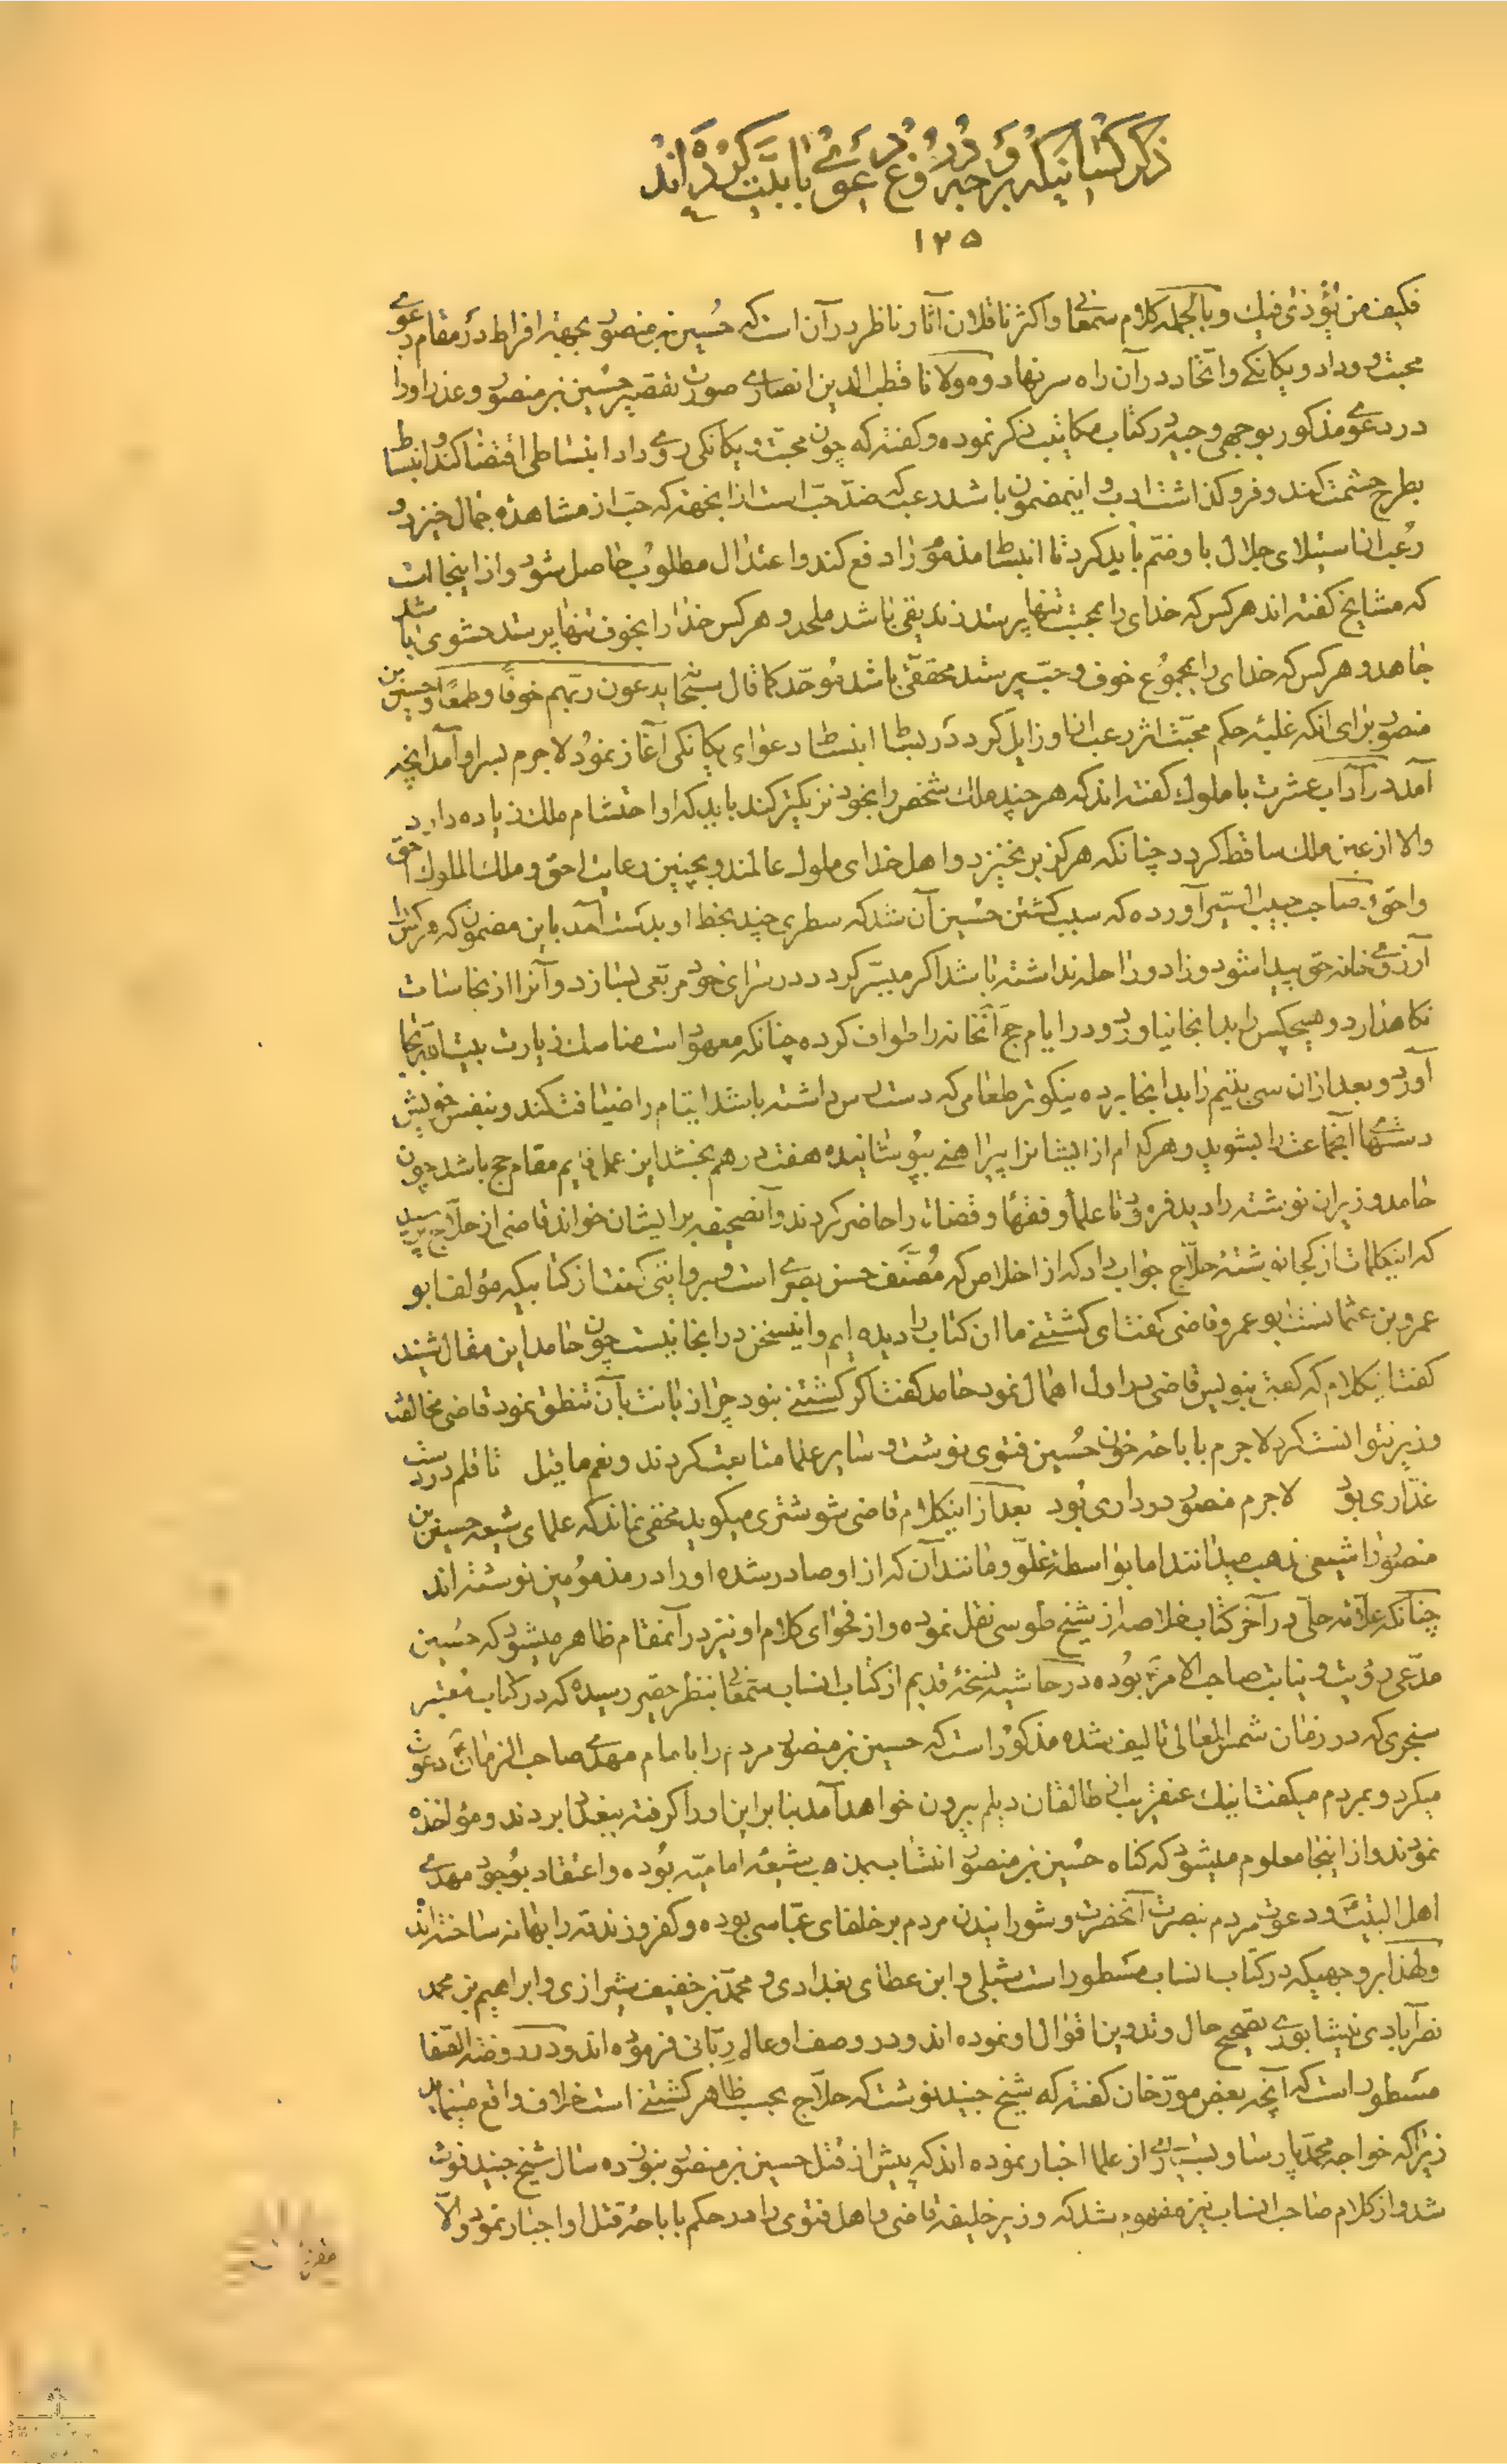 ذکر کسانیکه بر وجه دروغ دعوی بابیت کرده اند
۱۲۵
فکیف من یؤذی فیک و بالجمله کلام سمعانی و اکثر ناقلان آثار ناظر در آن است که حسین بن منصور بجهة افراط در مقام دعوی
محبت و وداد و یکانکی و اتحاد در آن راه سر نهاده و مولانا قطب الدین انصاری صورت تقصیر حسین بن منصور و عذر او را
در دعوی مذکور بوجهی وجیه در کتاب مکاتیب ذکر نموده و کفته که چون محبت و یکانکی روی داد انبساطی اقتضا کند و انبساط
بطرح حشمت کند و فرو کذاشت ادب و اینمضمون باشد رعب که ضد حب است از انجهة که حب از مشاهده جمال خیزد و
رعب از استیلای جلال با وضم باید کرد تا انبساط مذموم را دفع کند و اعتدال مطلوب حاصل شود و از اینجا است
که مشایخ کفته اند هر کس که خدای را بمحبت تنها پرستد زندیقی باشد ملحد و هر کس خدا را بخوف تنها پرستد حشوی باشد
جاهد و هر کس که خدای را بمجموع خوف و حب پرستد محققی باشد موحد کما قال سبحانه یدعون ربهم خوفا و طمعا و حسین بن
منصور برای انکه غلبه حکم محبت اثر رعب از او زایل کرد در بساط انبساط دعوای یکانکی آغاز نمود لاجرم بسر او آمد انچه
آمد در آداب عشرت با ملوک کفته اند که هر چند ملک شخص را بخود نزدیکتر کند باید که او احتشام ملک زیاده دارد
والا از عین ملک ساقط کردد چنانکه هرکز بر نخیزد و اهل خدای ملوک عالمند و بچنین رعایت احق و ملک الملوک احق
و احق و صاحب حبیب السیر آورده که سبب کشتن حسین آن شد که سطری چند بخط او بدست آمد باین مضمون که هر کس را
آرزوی خانه حق پیدا شود و زاد و راحله نداشته باشد اکر میسر کردد در سرای خود مربعی بسازد و آنرا از نجاسات
نکاهدارد و هیچکس را بدانجا نیاورد و در ایام حج آنخانه را طواف کرده چنانکه معهود است مناسک زیارت بیت الله بجا
آورد و بعد از ان سی یتیم را بدانجا برده نیکوتر طعامی که دسترس داشته باشد ایتام را ضیافت کند و بنفس خویش
دستهای انجماعت را بشوید و هر کدام از ایشانرا پیراهنی بپوشانیده هفت درهم بخشد این عمل قایم مقام حج باشد چون
حامد وزیر ان نوشته را دید فرمود تا علما و فقها و قضات را حاضر کردند و آنصحیفه بر ایشان خواند قاضی از حلاج پرسید
که اینکلمات از کجا نوشتهٔ حلاج جواب داد که از اخلاص که مصنف حسن بصری است و بروایتی کفت از کتابیکه مؤلف ابو
عمرو بن عثمانست ابو عمرو قاضی کفت ای کشتنی ما ان کتاب را دیده ایم و اینسخن در انجا نیست چون حامد این مقال شنید
کفت اینکلام که کفتی بنویس قاضی در اول اهمال نمود حامد کفت اکر کشتنی نبود چرا زبانت بآن تنطق نمود قاضی مخالفت
وزیر نتوانست کرد لاجرم باباحه خون حسین فتوی نوشت و سایر علما متابعت کردند و نعم ما قیل تا قلم در دست
غداری بود لاجرم منصور بر داری بود بعد از اینکلام قاضی شوشتری میکوید مخفی نماند که علمای شیعه حسین بن
منصور را شیعی مذهب میدانند اما بواسطه غلو و مانند آن که از او صادر شده او را در مذمومین نوشته اند
چنانکه علامه حلی در آخر کتاب خلاصه از شیخ طوسی نقل نموده و از فحوای کلام او نیز در آنمقام ظاهر میشود که حسین
مدعی رؤیت و نیابت صاحب الامر بوده در حاشیه نسخهٔ قدیم از کتاب انساب سمعانی بنظر حقیر رسیده که در کتاب معتبر
سنجری که در زمان شمس المعالی تالیف شده مذکور است که حسین بن منصور مردم را بامام مهدی صاحب الزمان دعوت
میکرد و بمردم میکفت اینک عنقریب از طالقان دیلم بیرون خواهد آمد بنابراین او را کرفته ببغداد بردند و مؤاخذه
نمودند و از اینجا معلوم میشود که کناه حسین بن منصور انتساب بمذهب شیعه امامیه بوده و اعتقاد بوجود مهدی
اهل البیت و دعوت مردم بنصرت آنحضرت و شورانیدن مردم بر خلفای عباسی بوده و کفر و زندقه را بهانه ساخته اند
و لهذا بر وجهیکه در کتاب انساب مسطور است شبلی و ابن عطای بغدادی و محمد بن خفیف شیرازی و ابراهیم بن محمد
نصرآبادی نیشابوری تصحیح حال و تدوین اقوال او نموده اند و در وصف او عالم ربانی فرموده اند و در روضة الصفا
مسطور است که آنچه بعض مورخان کفته که شیخ جنید نوشت که حلاج بحسب ظاهر کشتنی است خلاف واقع مینماید
زیرا که خواجه محمد پارسا و بسیاری از علما اخبار نموده اند که پیش از قتل حسین بن منصور بنوزده سال شیخ جنید فوت
شد و از کلام صاحب انساب نیز مفهوم شد که وزیر خلیفه قاضی و اهل فتوی را در حکم باباحهٔ قتل او اجبار نمود والا